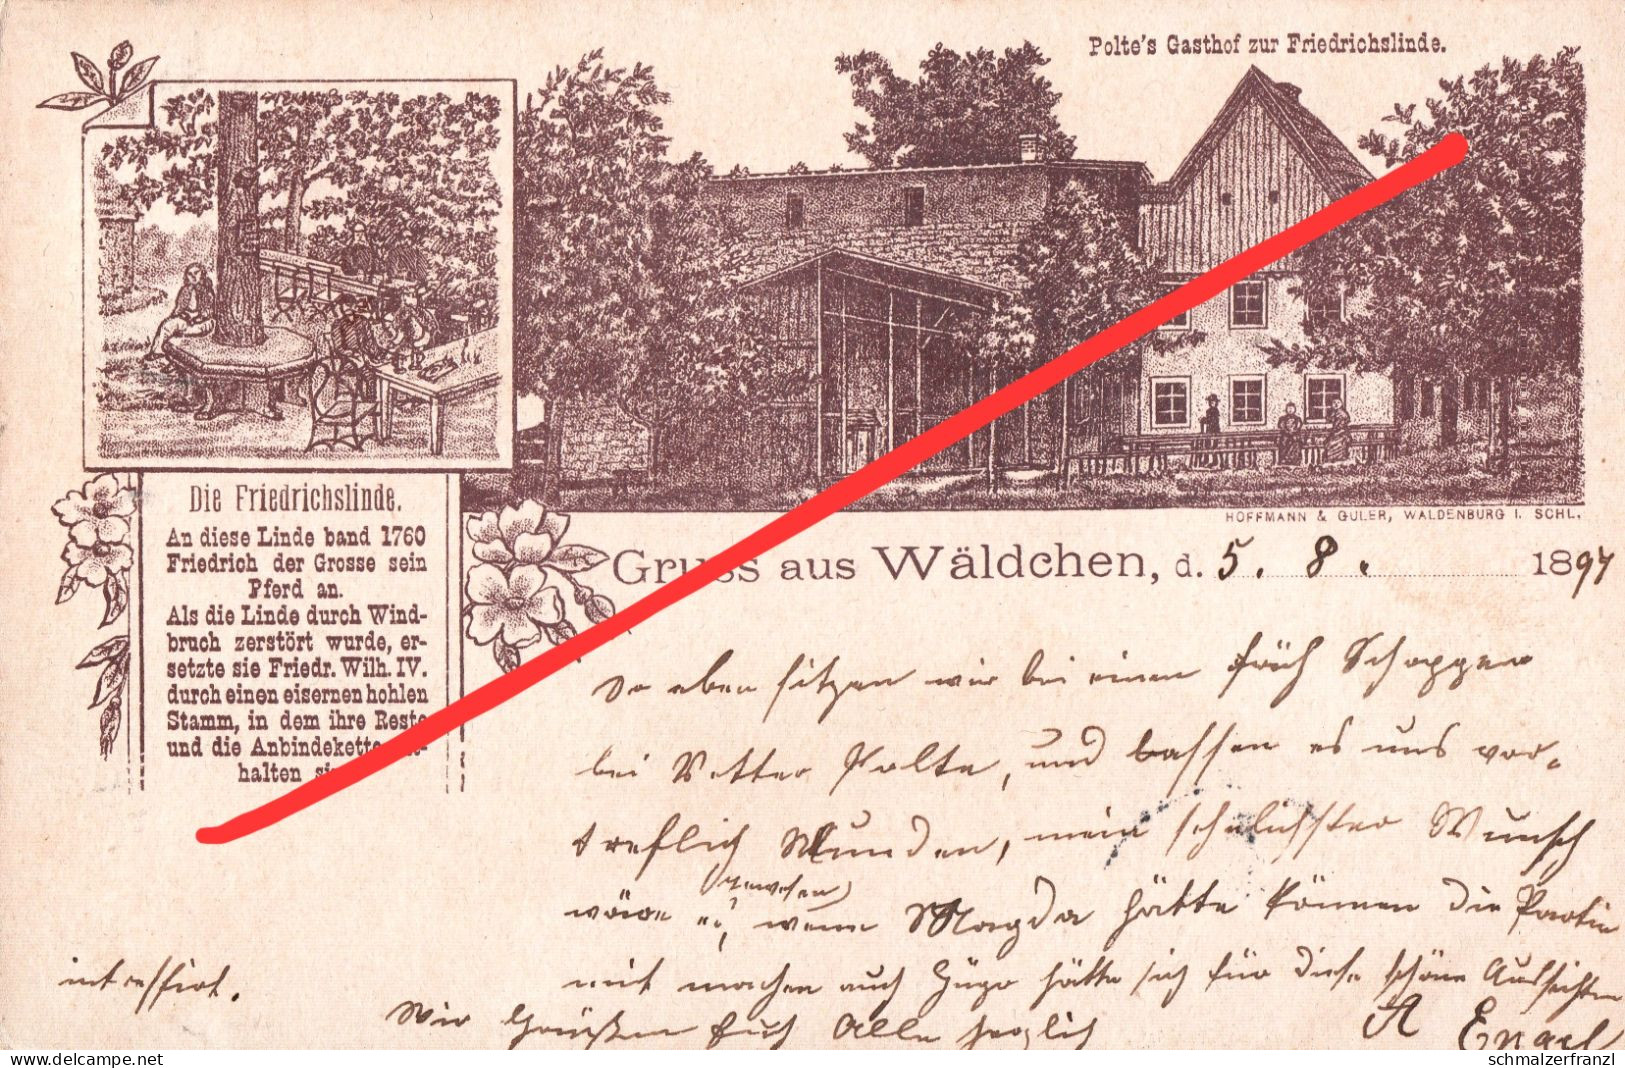 Polte's Gasthof zur Friedrichslinde.
HOFFMANN & GULER, WALDENBURG I. SCHL.
Die Friedrichslinde.
An diese Linde band 1760
Friedrich der Grosse sein
Pferd an.
Als die Linde durch Wind-
bruch zerstört wurde, er-
setzte sie Friedr. Wilh. IV.
durch einen eisernen hohlen
Stamm, in dem ihre Reste
und die Anbindekette
halten
Gruss aus Wäldchen, d. 5. 8. 1897
So eben sitzen wir bei einem früh Schoppen
bei Vetter Polte, und lassen es uns vor-
treflich Munden, mein sehnlichster Wunsch
wäre es, (gewesen) wenn Magda hätte können die Partie
mit machen auch Hugo hätte sich für diese schöne Aussichten
intressirt.
Wir Grüßen Euch Alle herzlich
A Engel
schmalzerfranzl